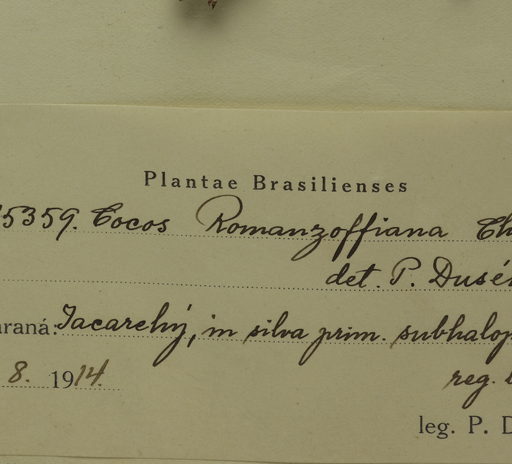 Plantae Brasilienses
15359. Cocos Romanzoffiana Ch
det. P. Dusén
araná: Jacarehý, in silva prim. subhalop
8. 1914. reg. l
leg. P. D